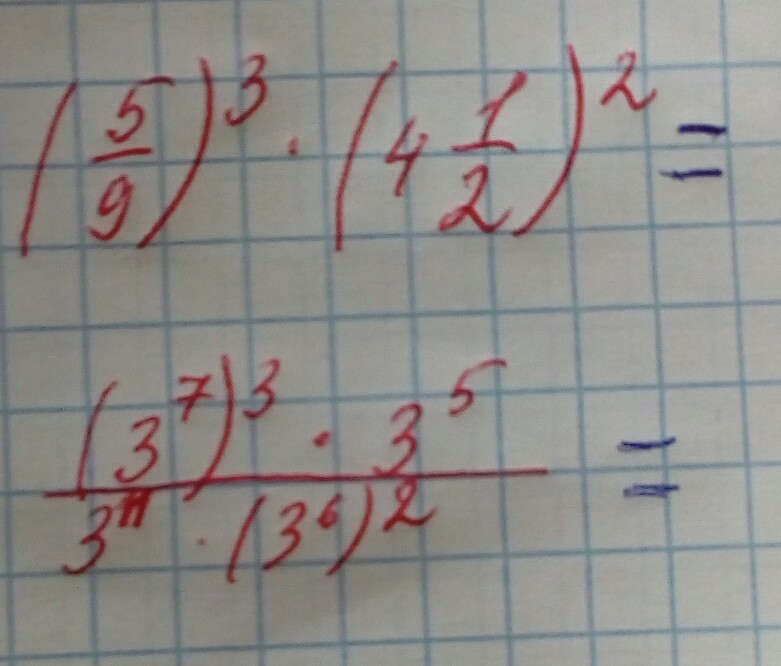 (5/9)³ · (4 1/2)² =
(3⁷)³ · 3⁵ / 3¹¹ · (3⁶)² =